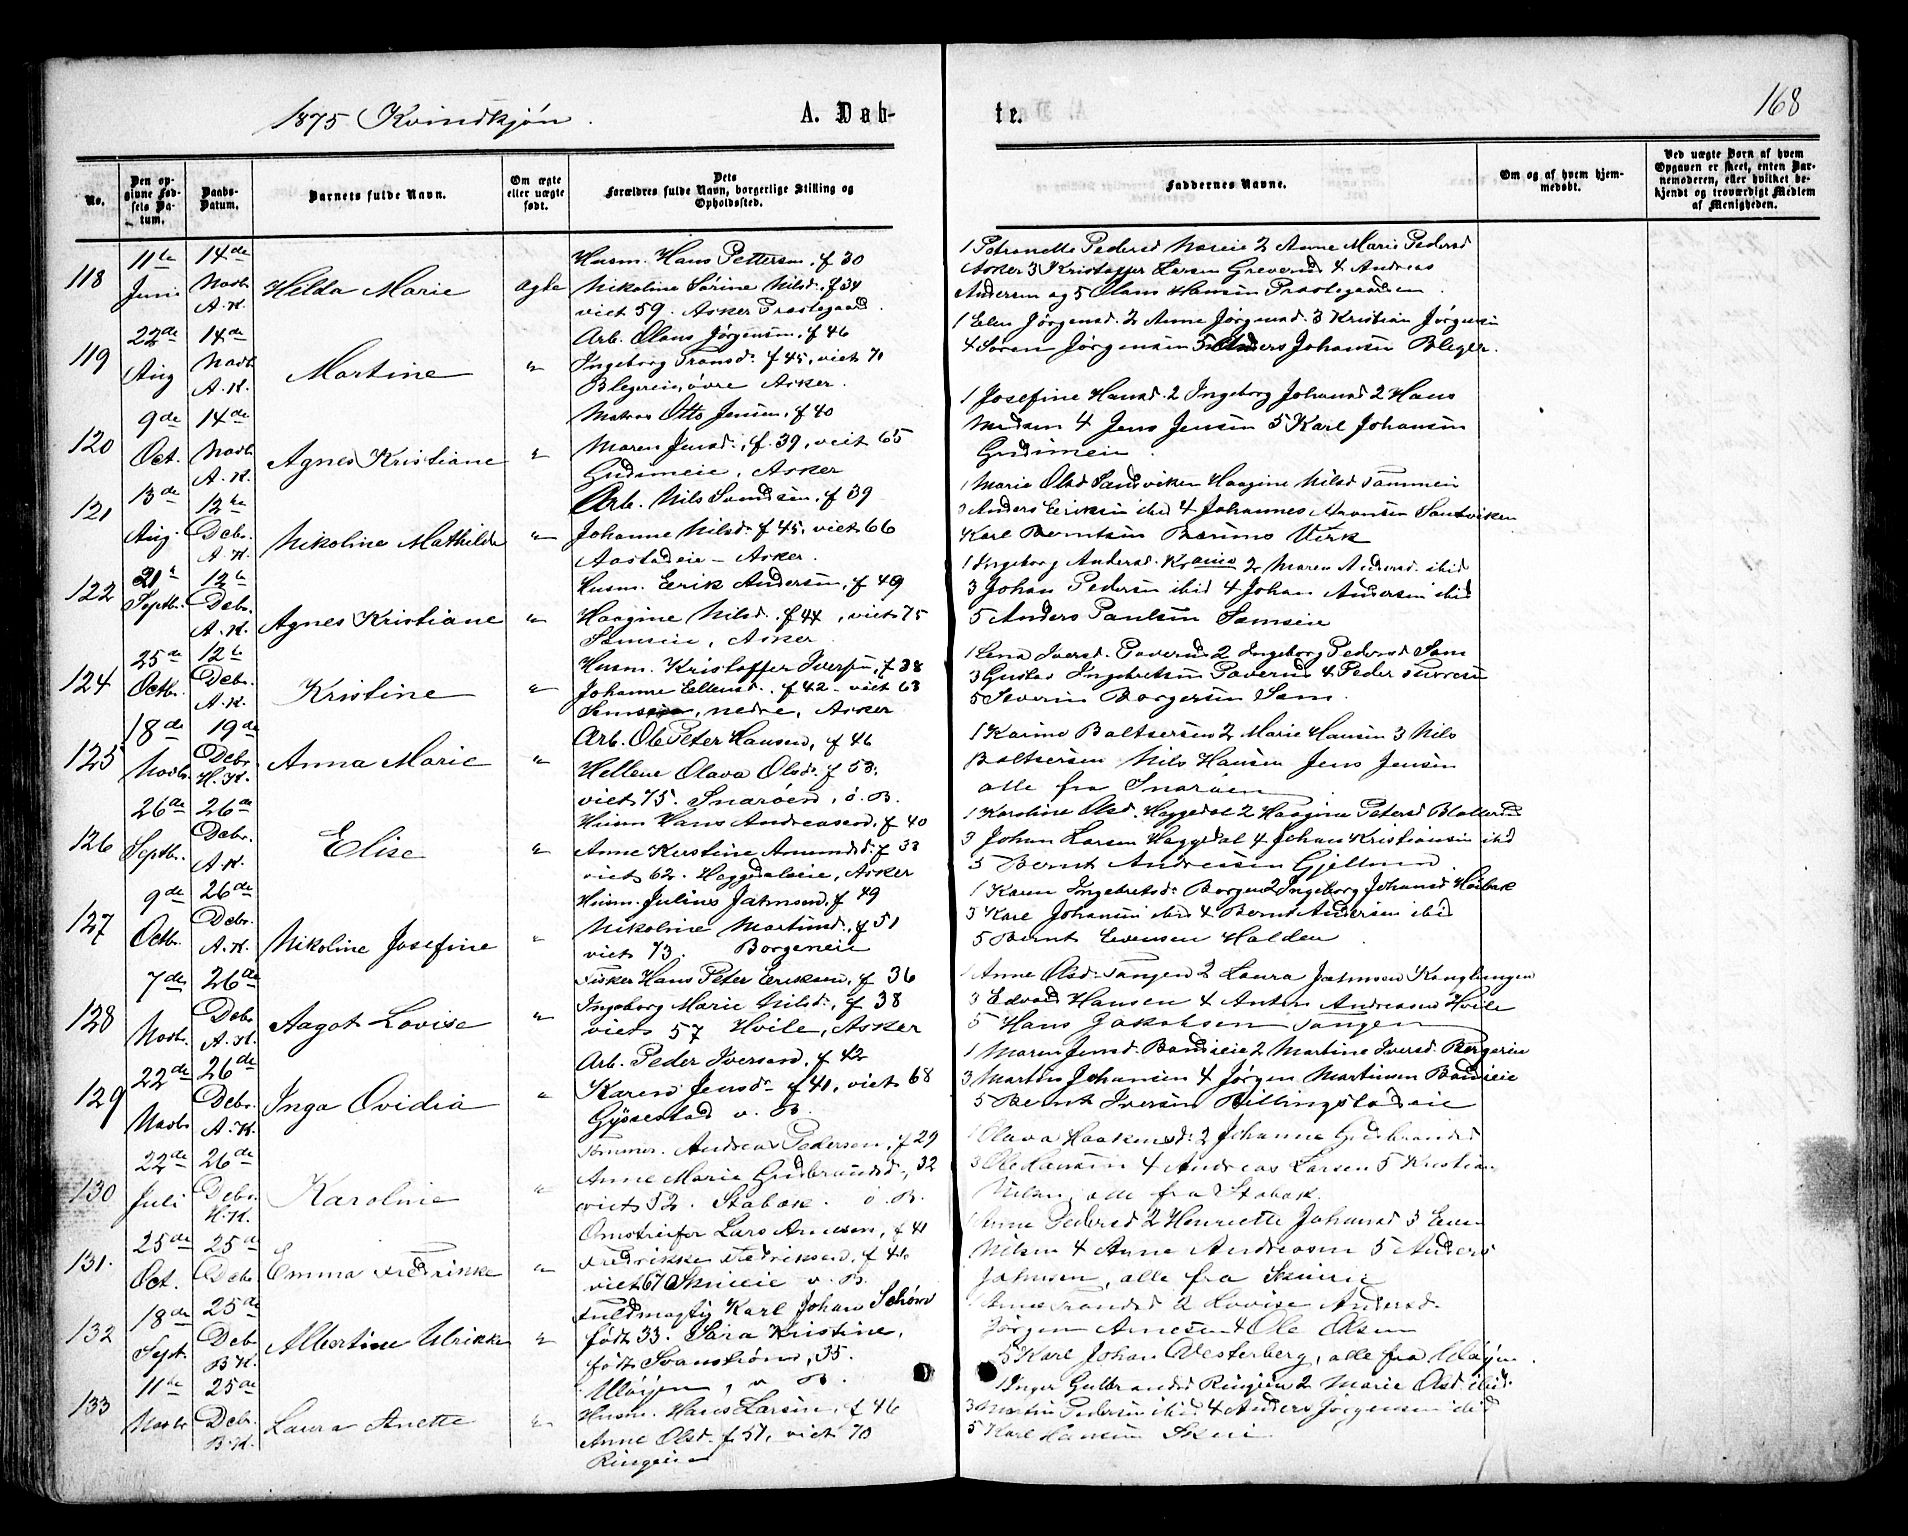 168
1875 Kvindkjøn.
A. Døb-
te.
No.
Den opgivne Fødsels Datum.
Daabs-Datum.
Barnets fulde Navn.
Om ægte eller uægte født.
Dets Forældres fulde Navn, borgerlige Stilling og Opholdssted.
Faddernes Navne.
Om og af hvem hjemmedøbt.
Ved uægte Børn af hvem Opgaven er skeet, enten Barnemoderen, eller hvilket bekjendt og troværdigt Medlem af Menigheden.
118 11te Juni 14de Novbr A.K. Hilda Marie ægte
Husm. Hans Pettersen, f 30
Nikoline Sørine Nilsd., f 34
viet 59. Asker Præstegaard
1 Petronelle Pedersd 2 Anne Marie Pedersd
Asker 3 Kristoffer Larsen Greverud 4 Andreas
Andersen og 5 Olaus Hansen Præstegaarden
119 22de Aug 14de Novb A.K. Martine "
Arb. Olaus Jørgensen, f 46
Ingeborg Fransd. f 45, viet 71
Blegereie, øvre Asker.
1 Elen Jørgensd. 2 Anne Jørgensd. 3 Kristian Jørgensen
4 Søren Jørgensen 5 Anders Johansen Bleger.
120 9de Oct. 14de Novb. A.K. Agnes Kristiane "
Matros Otto Jensen, f 40
Maren Jensd., f. 39, viet 65
Gudimeie, Asker
1 Josefine Hansd. 2 Ingeborg Johansd 2 Hans
4 Jens Jensen 5 Karl Johansen
Gudimeie.
121 13de Aug. 12te Debr. A.K. Nikoline Mathilde "
Arb. Nils Svendsen, f 39
Johanne Nilsd. f 45, viet 66
Aastadeie - Asker.
1 Marie Olsd Sandviken Haagine Nilsd
3 Anders Eriksen ibid 4 Johannes Sandviken
Karl Berntsen Bærums Værk
122 21de Septbr. 12te Debr. A.K. Agnes Kristiane "
Husm. Erik Andersen, f 49
Haagine Nilsd. f 44, viet 75
Semseie, Asker
1 Ingeborg Andersd. 2 Maren Andersd. ibid
3 Johan Pedersen ibid 4 Johan Andersen ibid
5 Anders Paulsen Semseie
124 25de Octbr. 12te Debr. A.K. Kristine "
Husm. Kristoffer Iversen, f 38
Johanne Ellensd. f 42 - viet 63
nedre, Asker
1 Lena Iversd. Toverud 2 Ingeborg Pedersd Sem
3 Gustav Ingebretsen Toverud 4 Peder
5 Severin Borgersen Sem.
125 18de Novbr. 19de Debr. H.K. Anna Marie "
Arb. Ole Peter Hansen, f 46
Hellene Olava Olsdr. f 53.
viet 75. Snarøen, ø. B.
1 Karine Baltsersen 2 Marie Hansen 3 Nils
Baltsersen Nils Hansen Jens Jensen
alle fra Snarøen
126 26de Septbr. 26de Debr. A.K. Elise "
Husm Hans Andreasen, f 40
Anne Kirstine Amundsd. f 33
viet 62. Heggedaleie, Asker
1 Karoline Olsd. Heggedal 2 Haagine Petersd
3 Johan Larsen Heggedal 4 Johan Kristiansen ibid
5 Bernt Andreasen Gjellum
127 9de Octbr. 26de Debr. A.K. Nikoline Josefine "
Husm. Julius Jahnsen, f 49
Nikoline Martinsd., f 51
viet 73. Borgeneie
1 Karen Ingebretsd. Borgen 2 Ingeborg Johansd
3 Karl Johansen ibid 4 Bernt Andersen ibid
5 Bernt Evensen Holden
128 7de Novbr. 26de Debr. A.K. Aagot Lovise "
Fisker Hans Peter Eriksen, f 36
Ingeborg Marie Nilsd., f 38
viet 57 Hvile, Asker
1 Anne Olsd. Tangen 2 Laura Jahnsen Konglungen
3 Edvard Hansen 4 Anton Andreasen Hvile
5 Hans Jakobsen Tangen
129 22de Novbr 26de Debr. A.K. Inga Ovidia "
Arb. Peder Iversen, f 42
Karen Jensdr f 41, viet 68
Gyssestad v. B.
1 Maren Jensd. 2 Martine Iversd.
3 Martin Johansen 4 Jørgen Martinsen
5 Bernt Iversen Billingstadeie
130 22de Juli 26de Debr. H.K. Karoline "
Tømmer. Andreas Pedersen, f 29
Anne Marie Gudbrandsd., 32
viet 52. Stabæk. ø. B.
1 Olava Haakensd. 2 Johanne Gudbrandsd
3 Ole Hansen 4 Andreas Larsen 5 Kristian
Nilsen, alle fra Stabæk.
131. 25de Oct. 25de Debr Emma Fredrikke "
Omstreifer Lars Arnesen, f 41
Fredrikke Fredriksen, f 46
viet 67 Skuieie v. B.
1 Anne Pedersd 2 Henriette Johansd 3 Even
Nilsen 4 Anne Andreasen 5 Anders
Jahnsen, alle fra Skuieie
132 18de Sept. 25de Deb B.K. Albertine Ulrikke "
Fuldmægtig Karl Johan Schøn
født 33. Sara Kristine,
født Svanstrøm, 35.
Wøyen, v. B.
1 Anne 2 Lovise Andersd.
Jørgen Arnesen 4 Ole Olsen
5 Karl Johan Westerberg, alle fra Wøyen.
133 11te Novbr 25de Debr. B.K. Laura Anette "
Husm. Hans Larsen, f 46
Anne Olsd. f 51, viet 70
Ringeie
1 Inger Gulbrandsd 2 Marie Olsd ibid.
3 Martin Pedersen ibid 4 Anders Jørgensen ibid
5 Karl Hansen